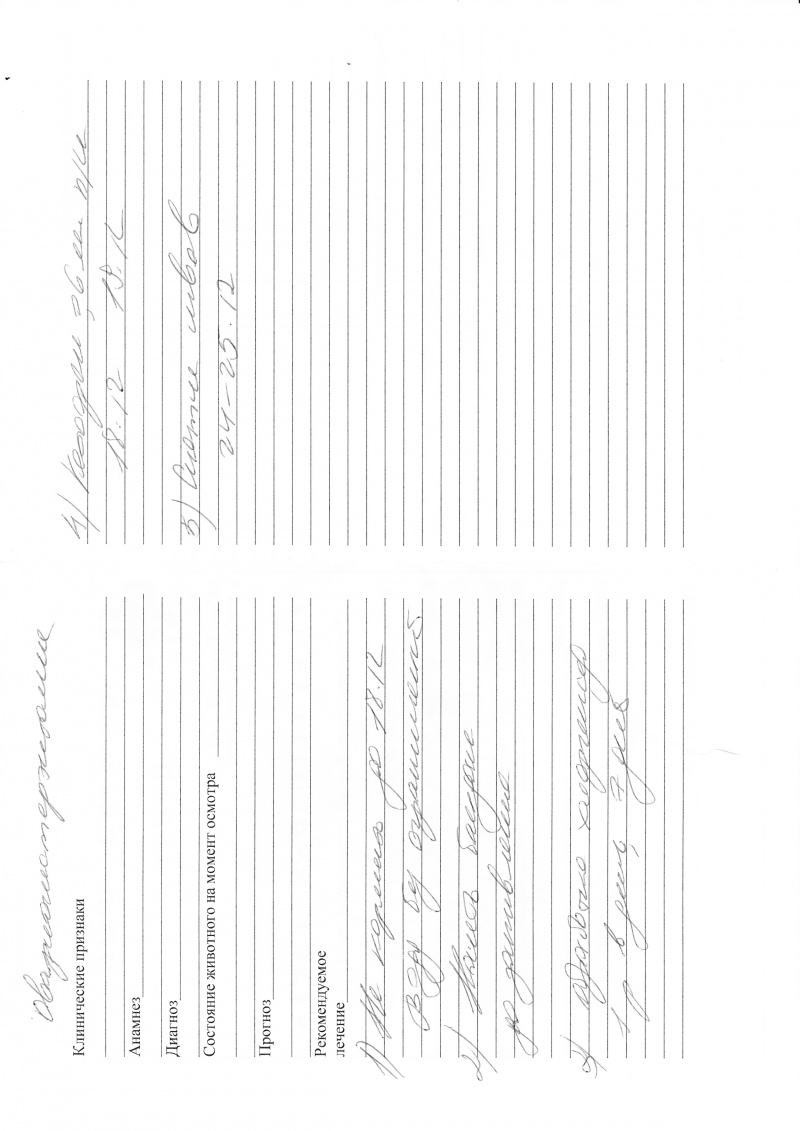 Овариогистерэктомия
Клинические признаки
Анамнез
Диагноз
Состояние животного на момент осмотра
Прогноз
Рекомендуемое
лечение
1) Не кормить до 18.12
воду без ограничений.
2) Носить бандаж
до заживления
3) шов хлоргексидин
1 р в день, 7 дней
4) 0,6 мл п/к
18.12 19.12
5) Снятие швов
24-25.12